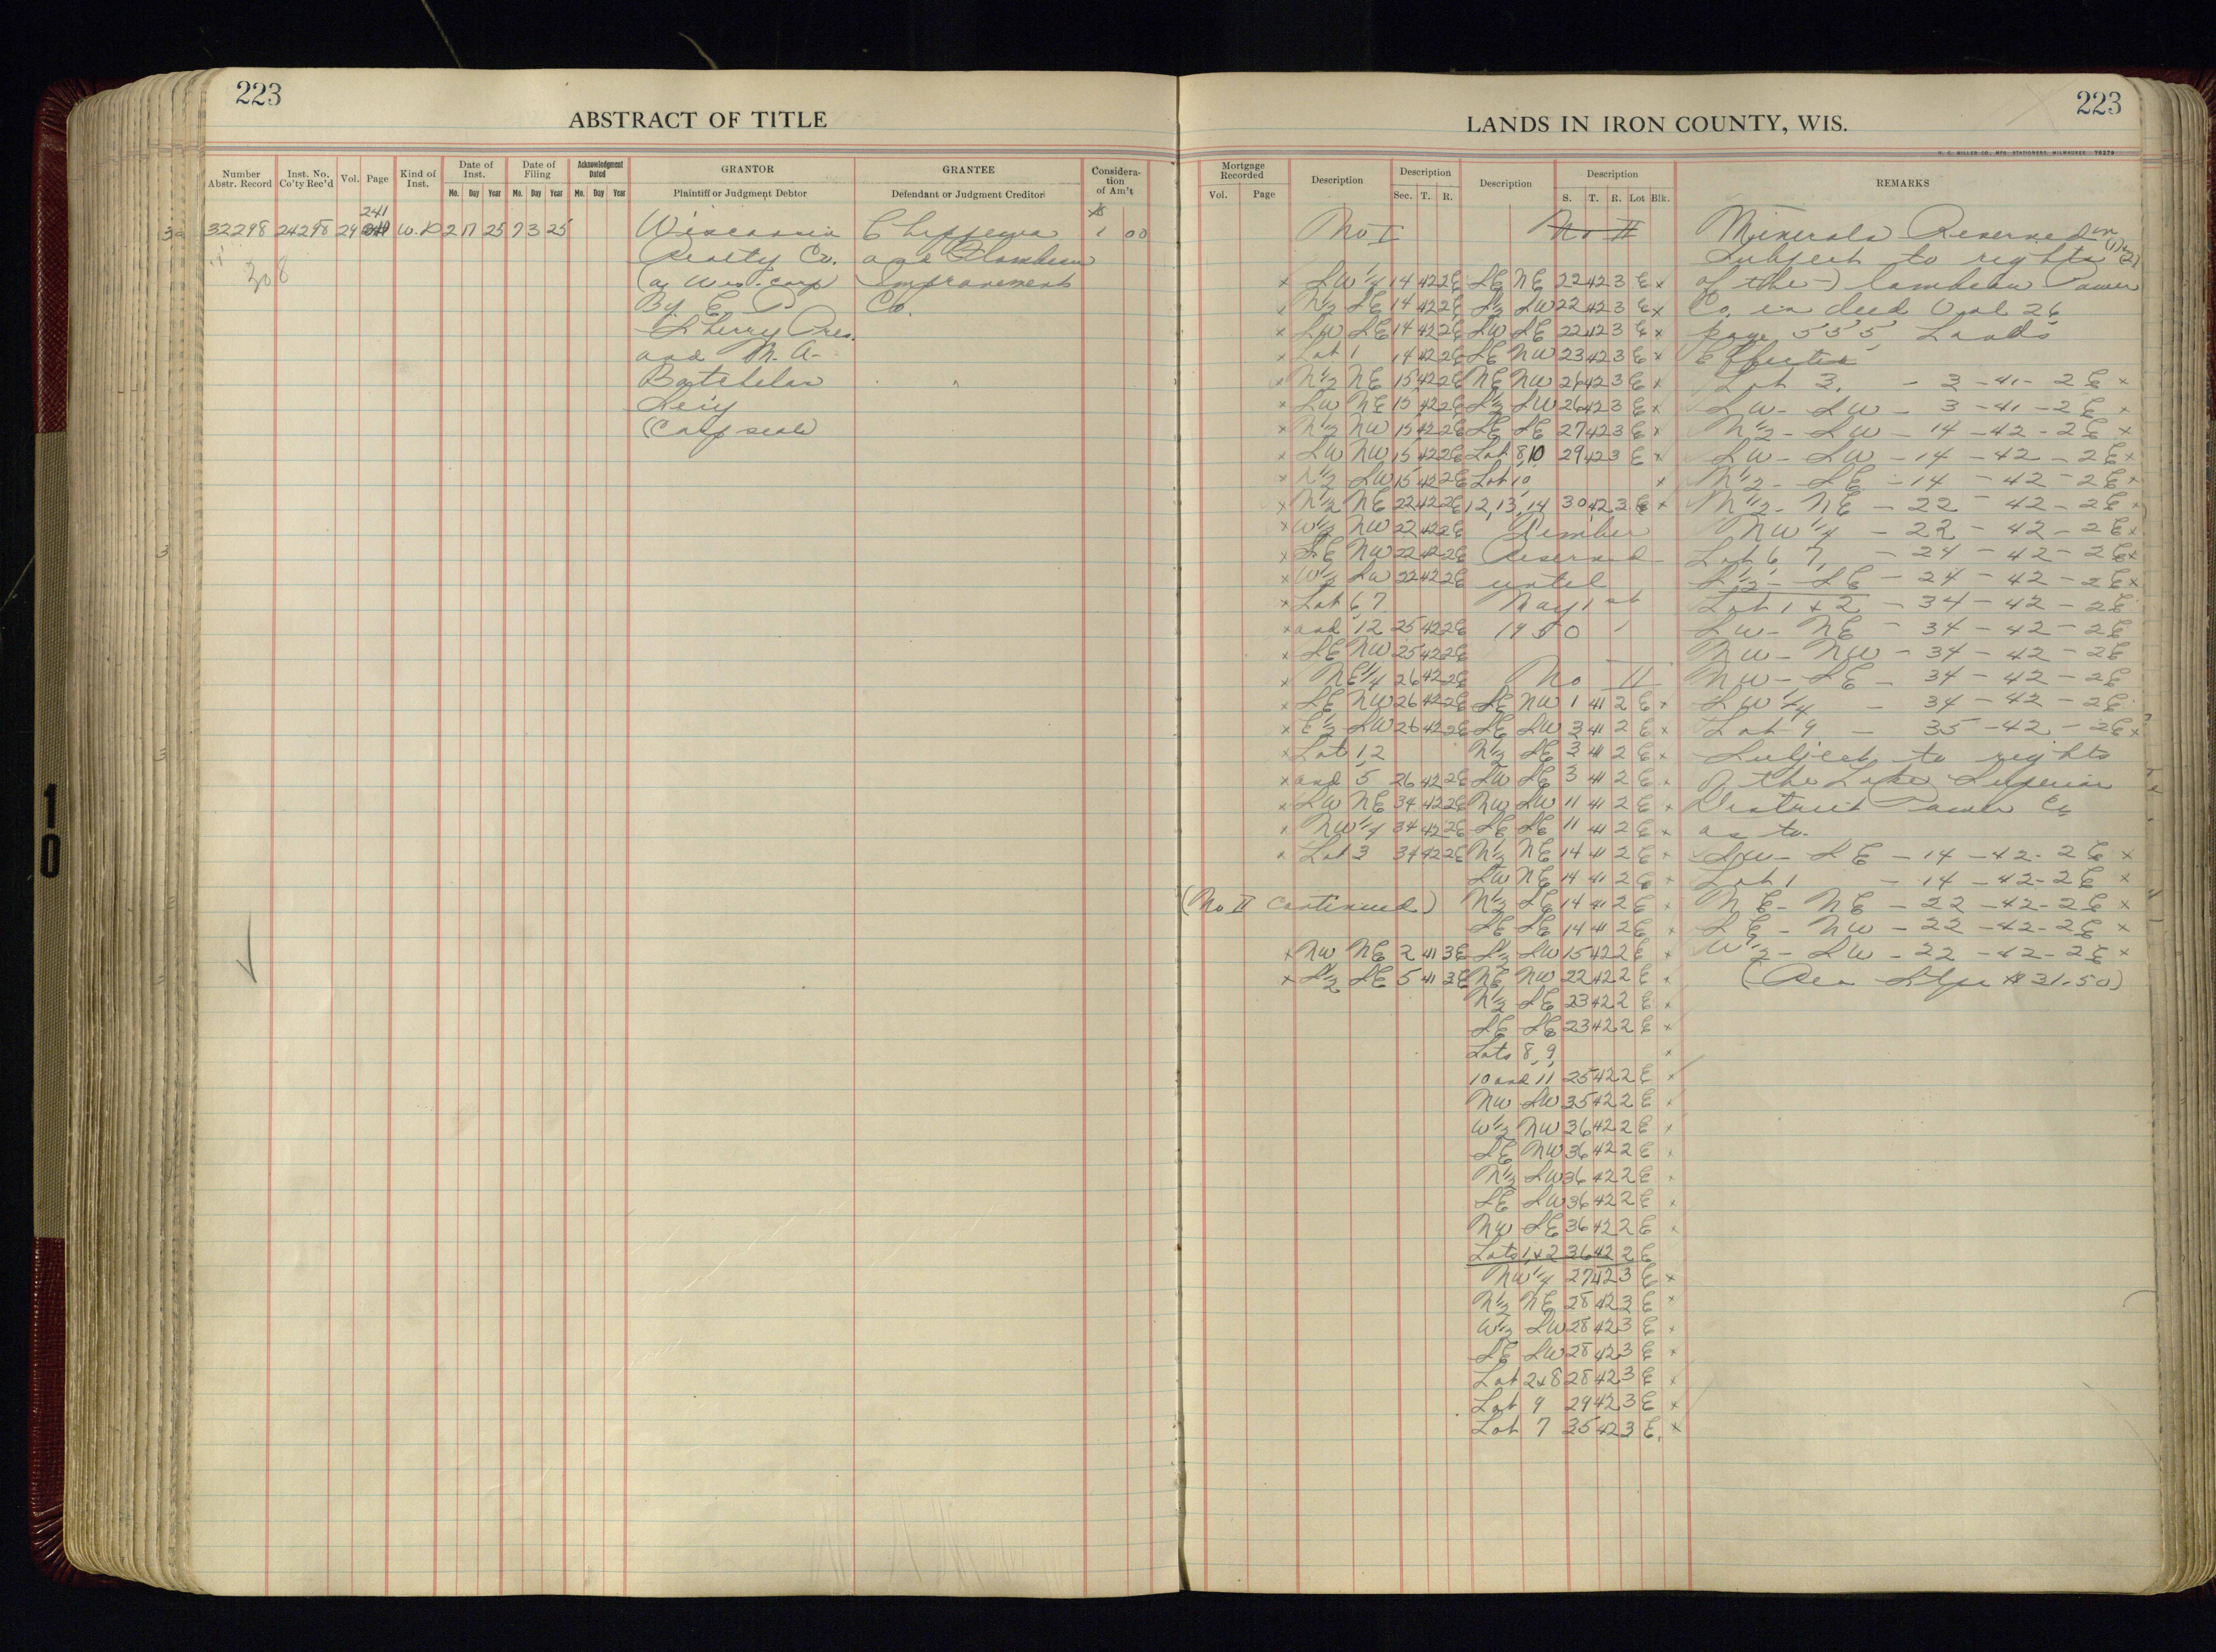 223
ABSTRACT OF TITLE
Number Abstr. Record
Inst. No. Co'ty Rec'd
Vol.
Page
Kind of Inst.
Date of Inst.
Mo. Day Year
Date of Filing
Mo. Day Year
Acknowledgment Dated
Mo. Day Year
GRANTOR
Plaintiff or Judgment Debtor
GRANTEE
Defendant or Judgment Creditor
Consideration of Am't
241
32298 24298 29 W.D 2 17 25 7 3 25 Wisconsin Chippewa $1 00
Realty Co. and Flambeau
(a Wis. corp) Improvement
By E P Co.
Sherry Pres.
and M. A.
Batchelor
Secy
(Corp seal)
308
223
LANDS IN IRON COUNTY, WIS.
H. C. MILLER CO., MFG. STATIONERS, MILWAUKEE 76279
Mortgage Recorded
Vol. Page
Description
Description
Sec. T. R.
Description
Description
S. T. R. Lot Blk.
REMARKS
No I
No II
x SW 1/4 14 42 2E SE NE 22 42 3 E x
x N 1/2 SE 14 42 2E S 1/2 SW 22 42 3 E x
x SW SE 14 42 2E SW SE 22 42 3 E x
x Lot 1 14 42 2E SE NW 23 42 3 E x
x N 1/2 NE 15 42 2E NE NW 26 42 3 E x
x SW NE 15 42 2E S 1/2 SW 26 42 3 E x
x N 1/2 NW 15 42 2E SE SE 27 42 3 E x
x SW NW 15 42 2E Lot 8, 10 29 42 3 E x
x N 1/2 SW 15 42 2E Lot 10, x
x N 1/2 NE 22 42 2E 12, 13, 14 30 42 3 E x
x W 1/2 NW 22 42 2E Timber
x SE NW 22 42 2E Reserved
x W 1/2 SW 22 42 2E until
x Lot 6, 7 May 1 st
x and 12 25 42 2E 1950
x SE NW 25 42 2E
x NE 1/4 26 42 2E No II
x SE NW 26 42 2E SE NW 1 41 2 E x
x E 1/2 SW 26 42 2E SE SW 3 41 2 E x
x Lot 1, 2 N 1/2 SE 3 41 2 E x
x and 5 26 42 2E SW SE 3 41 2 E x
x SW NE 34 42 2E NW SW 11 41 2 E x
x NW 1/4 34 42 2E SE SE 11 41 2 E x
x Lot 3 34 42 2E N 1/2 NE 14 41 2 E x
SW NE 14 41 2 E x
(No II Continued) N 1/2 SE 14 41 2 E x
SE SE 14 41 2 E x
x NW NE 2 41 3E S 1/2 SW 15 42 2 E x
x S 1/2 SE 5 41 3E NE NW 22 42 2 E x
N 1/2 SE 23 42 2 E x
SE SE 23 42 2 E x
Lots 8, 9, x
10 and 11 25 42 2 E x
NW SW 35 42 2 E x
W 1/2 NW 36 42 2 E x
SE NW 36 42 2 E x
N 1/2 SW 36 42 2 E x
SE SW 36 42 2 E x
NW SE 36 42 2 E x
Lots 1 + 2 36 42 2 E
NW 1/4 27 42 3 E x
N 1/2 NE 28 42 3 E x
W 1/2 SW 28 42 3 E x
SE SW 28 42 3 E x
Lot 2 + 8 28 42 3 E x
Lot 9 29 42 3 E x
Lot 7 35 42 3 E. x
Minerals Reserved on (1) (2)
Subject to rights
of the Flambeau Power
Co. in deed Vol 26
page 555 Lands
Effected
Lot 3. - 3 - 41 - 2 E x
SW - SW - 3 - 41 - 2 E x
N 1/2 - SW - 14 - 42 - 2 E x
SW - SW - 14 - 42 - 2 E x
N 1/2 - SE - 14 - 42 - 2 E x
N 1/2 - NE - 22 - 42 - 2 E x
NW 1/4 - 22 - 42 - 2 E x
Lot 6, 7, - 24 - 42 - 2 E x
S 1/2 - SE - 24 - 42 - 2 E x
Lot 1 + 2 - 34 - 42 - 2 E
SW - NE - 34 - 42 - 2 E
NW - NW - 34 - 42 - 2 E
NW - SE - 34 - 42 - 2 E
SW 1/4 - 34 - 42 - 2 E
Lot 9 - 35 - 42 - 2 E x
Subject to rights
of the Lake Superior
District Power Co
as to
SW - SE - 14 - 42 - 2 E x
Lot 1 - 14 - 42 - 2 E x
NE - NE - 22 - 42 - 2 E x
SE - NW - 22 - 42 - 2 E x
W 1/2 - SW - 22 - 42 - 2 E x
(Rev Stps $31.50)
10